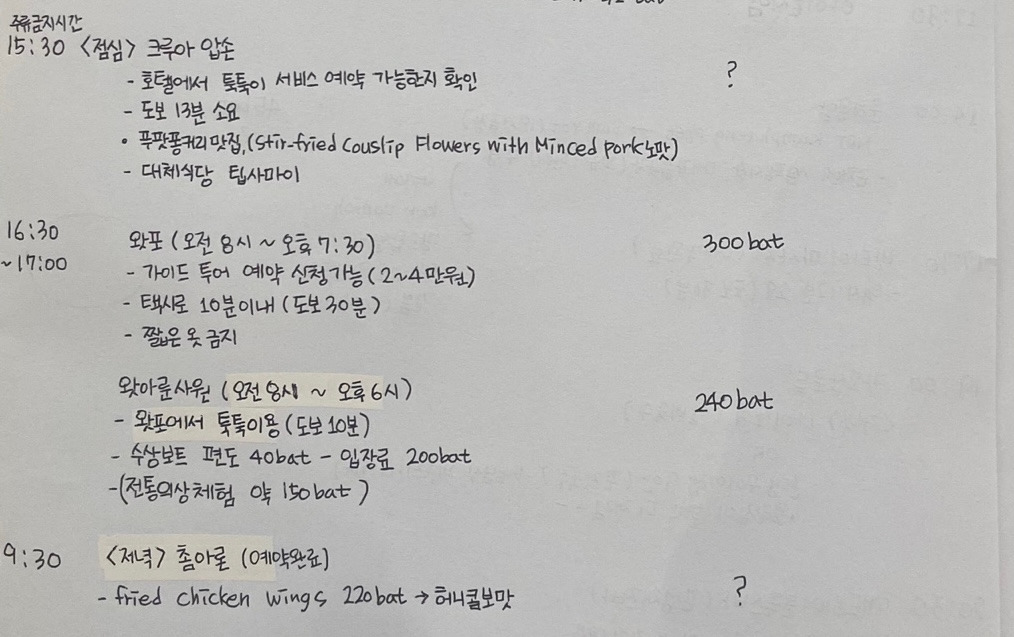 주류금지시간
15:30 <점심> 크루아 압손 ?
- 호텔에서 툭툭이 서비스 예약 가능한지 확인
- 도보 13분 소요
• 푸팟퐁커리맛집,(Stir-fried Couslip Flowers with Minced pork노맛)
- 대체식당 팁사마이
16:30 ~17:00 왓포 (오전 8시 ~ 오후 7:30) 300bat
- 가이드 투어 예약 신청가능 (2~4만원)
- 택시로 10분이내 (도보 30분)
- 짧은 옷 금지
왓아룬사원 (오전 8시 ~ 오후 6시) 240bat
- 왓포에서 툭툭이용 (도보 10분)
- 수상보트 편도 40bat - 입장료 200bat
-(전통의상체험 약 150bat)
9:30 <저녁> 촘아룬 (예약완료)
- fried chicken wings 220bat → 허니콤보맛 ?